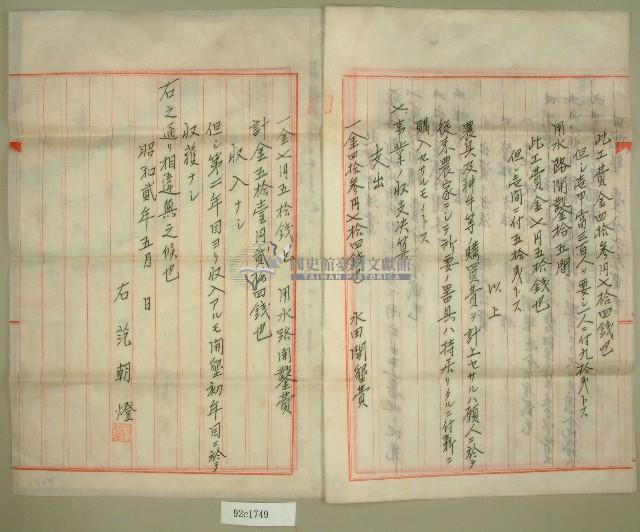 此工費金四拾參円七拾四錢也
但シ壱甲當三百人ヲ要シ一人ニ付九拾戔トス
用水路開鑿拾五間
此工費金七円五拾錢也
但シ壱間ニ付五拾戔トス
以上
農具及耕牛等購買費ヲ計上セサルハ願人ニ於テ
従来農家ニシテ所要ノ器具ハ持来リタルニ付新ニ
購入セサルモノトス
七、事業ノ收支決算
支出
一金四拾參円七拾四錢也 水田開墾費
一金七円五拾錢也 用水路開鑿費
計金五拾壹円貳拾四錢也
收入ナシ
但シ第二年目ヨリ收入アルモ開墾初年目ニ於テ
收穫ナシ
右之通リ相違無之候也
昭和貳年五月 日
右 范朝燈
國史館臺灣文獻館
TAIWAN HISTORICA
92c1749